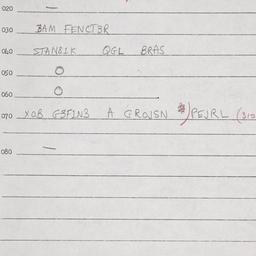 020 —
030 3AM FENCT3R
040 STAN81K QGL BRAS
050 O
060 O
070 XOB G3FIN3 A GROJSN *)PEJRL (310
080 —